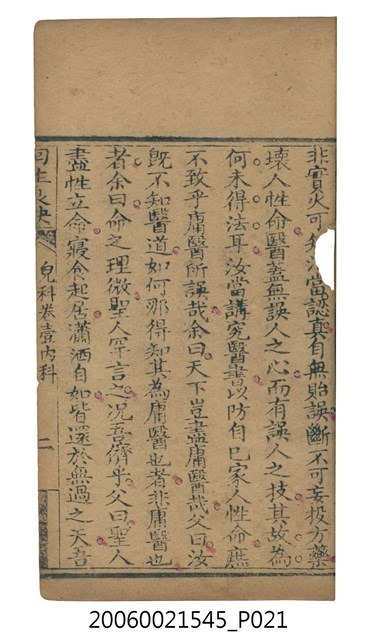 非實火可知汝當認真自無貽誤斷不可妄投方藥
壞人性命醫蓋無誤人之心而有誤人之技其故為
何未得法耳汝當講究醫書以防自己家人性命庶
不致乎庸醫所誤哉余曰天下豈盡庸醫哉父曰汝
既不知醫道如何那得知其為庸醫也者非庸醫也
者余曰命之理微聖人罕言之况吾儕乎父曰聖人
盡性立命寢食起居瀟洒自如皆還於無過之天吾
回生要訣 兒科卷壹內科 二
20060021545_P021